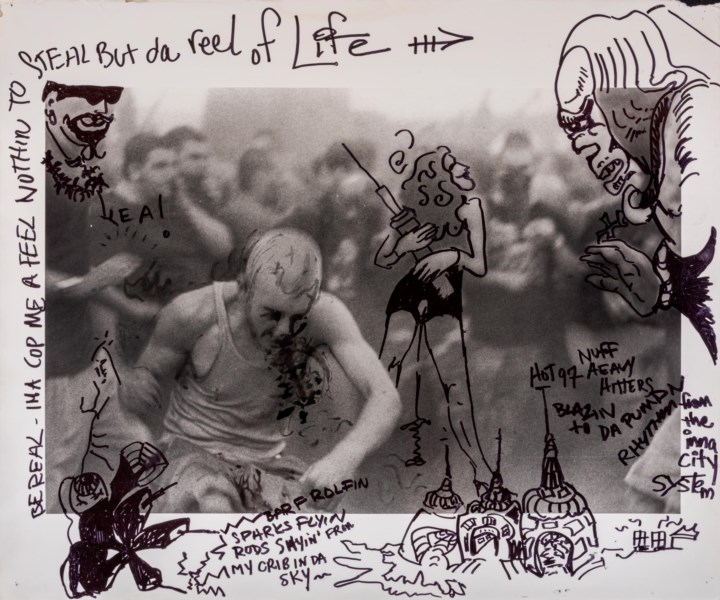 BE REAL - IMA COP ME A FEEL NOTHIN TO
STEAL BUT da reel of Life
YEA!
HOT 97
NUFF
HEAVY
HITTERS
BLAZIN
TO DA PUMPIN
RHYTHM
from
the
inna
City
System
BARF ROLFIN
SPARKS FLYIN
RODS SHYIN' FRM
MY CRIB IN DA
SKY